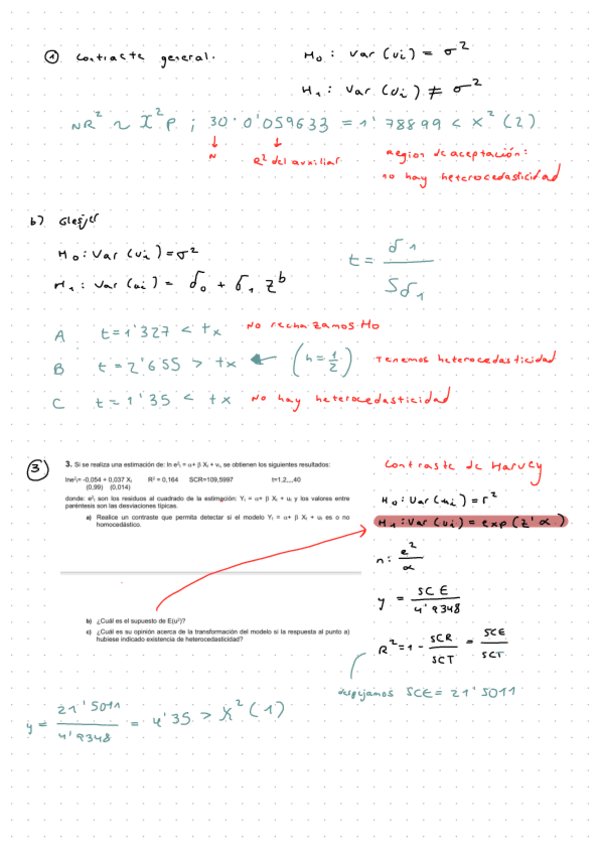 ① Contraste general.
H₀: Var (ui) = σ²
H₁: Var (ui) ≠ σ²
NR² ~ X²p ; 30·0'059633 = 1'78899 < X² (2)
N
R² del auxiliar
Region de aceptación:
no hay heterocedasticidad
b) Glesjer
H₀: Var (ui) = σ²
H₁: Var (ui) = δ₀ + δ₁ z^b
t = δ1 / Sδ1
A t = 1'327 < tx No rechazamos Ho
B t = 2'655 > tx (h = 1/2) Tenemos heterocedasticidad
C t = 1'35 < tx No hay heterocedasticidad
③
3. Si se realiza una estimación de: ln e²ₜ = α+ β Xₜ + uₜ, se obtienen los siguientes resultados:
lne²ₜ= -0,054 + 0,037 Xₜ R² = 0,164 SCR=109,5997 t=1,2,,,,40
(0,99) (0,014)
donde: e²ₜ son los residuos al cuadrado de la estimación: Yₜ = α+ β Xₜ + uₜ y los valores entre
paréntesis son las desviaciones típicas.
a) Realice un contraste que permita detectar si el modelo Yₜ = α+ β Xₜ + uₜ es o no
homocedástico.
b) ¿Cuál es el supuesto de E(u²)?
c) ¿Cuál es su opinión acerca de la transformación del modelo si la respuesta al punto a)
hubiese indicado existencia de heterocedasticidad?
Contraste de Harvey
H₀: Var (ui) = r²
H₁: Var (ui) = exp (z'α)
n: e²/α
y = SCE / 4'9348
R² = 1 - SCR/SCT = SCE/SCT
despejamos SCE = 21'5011
y = 21'5011 / 4'9348 = 4'35 > X² (1)